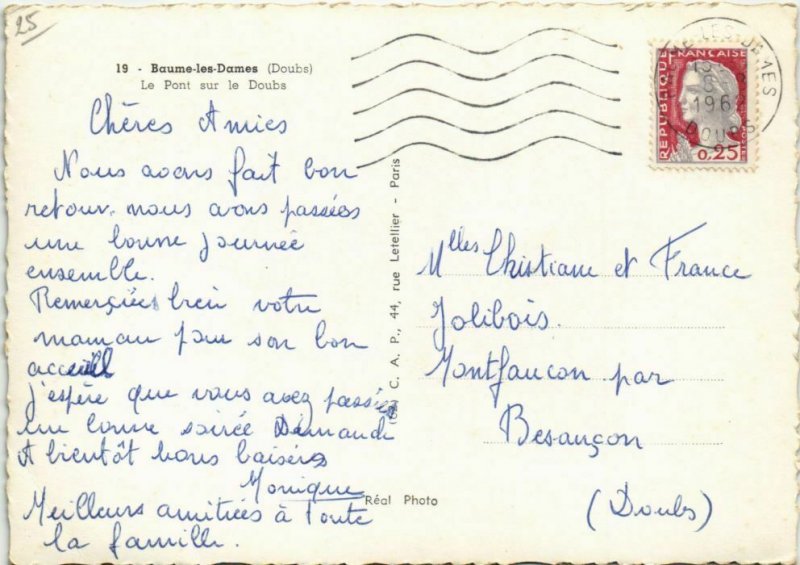 25
19 - Baume-les-Dames (Doubs)
Le Pont sur le Doubs
Chères Amies
Nous avons fait bon
retour. nous avons passées
une bonne journée
ensemble.
Remerçiées bien votre
maman pour son bon
accueil
j'espère que vous avez passés
une bonne soirée Dimanche
A bientôt bons baisers
Monique
Meilleurs amitiées à toute
la famille.
C. A. P., 44, rue Letellier - Paris
Réal Photo
REPUBLIQUE FRANÇAISE
0,25
1962
DOUBS
Mlles Christiane et France
Jolibois.
Montfaucon par
Besançon
(Doubs)